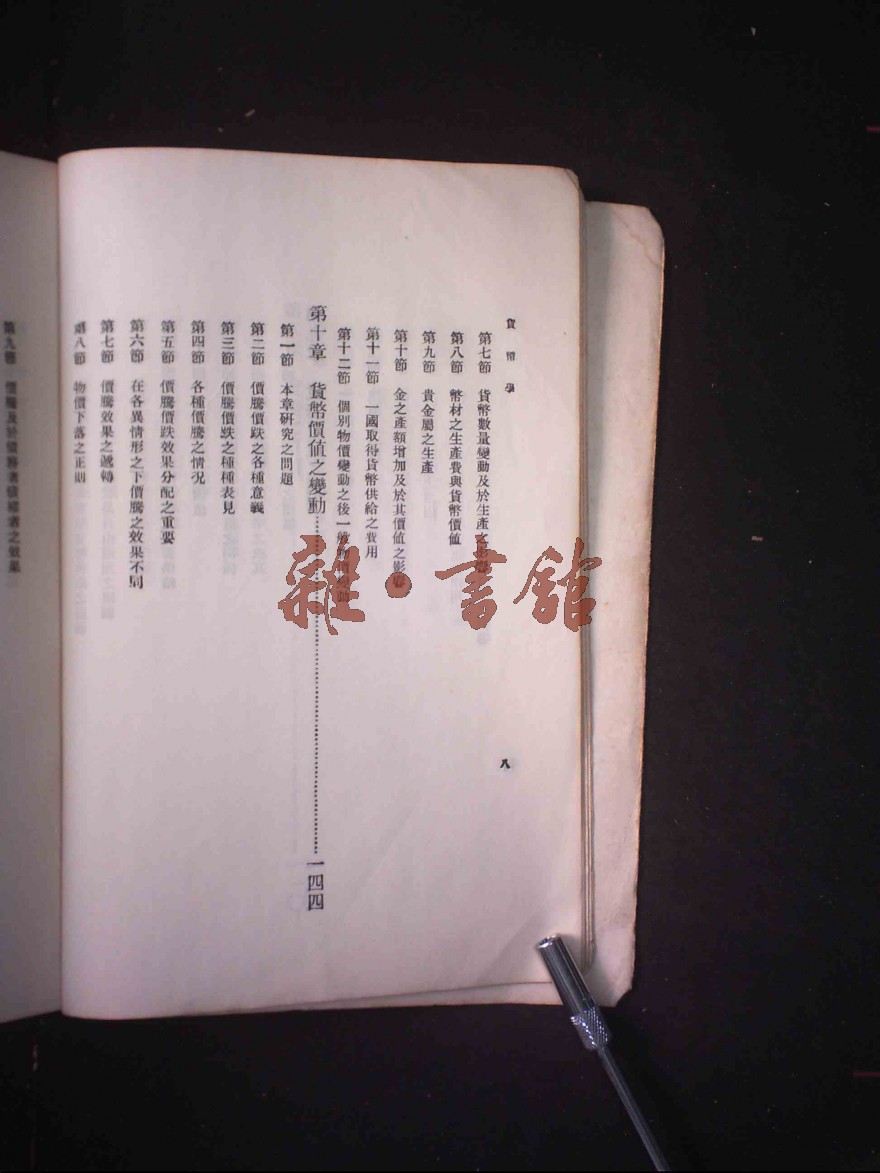 貨幣學
第七節 貨幣數量變動及於生產之影響
第八節 幣材之生產費與貨幣價値
第九節 貴金屬之生產
第十節 金之產額增加及於其價値之影響
第十一節 一國取得貨幣供給之費用
第十二節 個別物價變動之後一般物價變動
第十章 貨幣價値之變動 一四四
第一節 本章研究之問題
第二節 價騰價跌之各種意義
第三節 價騰價跌之種種表見
第四節 各種價騰之情況
第五節 價騰價跌效果分配之重要
第六節 在各異情形之下價騰之效果不同
第七節 價騰效果之遞轉
第八節 物價下落之正則
八
第九節 價騰及於債務者債權者之效果
雜·書館